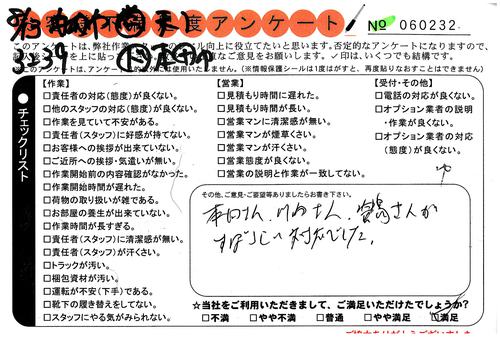 不満足度アンケート
№ 060232
このアンケートは、弊社作業
ル向上に役立てたいと思います。否定的なアンケートになりますので、
直なご意見をお願いします。✓印は、いくつでも結構です。
には使用いたしません。(※情報保護シールは1度はがすと、再度貼りなおすことはできません)
●チェックリスト
【作業】
□責任者の対応(態度)が良くない。
□他のスタッフの対応(態度)が良くない。
□作業を見ていて不安がある。
□責任者(スタッフ)に好感が持てない。
□お客様への挨拶が出来ていない。
□ご近所への挨拶・気遣いが無い。
□作業開始前の内容確認がなかった。
□作業開始時間が遅れた。
□荷物の取り扱いが雑である。
□お部屋の養生が出来ていない。
□作業時間が長すぎる。
□責任者(スタッフ)に清潔感が無い。
□責任者(スタッフ)が汗くさい。
□トラックが汚い。
□梱包資材が汚い。
□運転が不安(下手)である。
□靴下の履き替えをしてない。
□スタッフにやる気がみられない。
【営業】
□見積もり時間に遅れた。
□見積もり時間が長い。
□営業マンに清潔感が無い。
□営業マンが煙草くさい。
□営業マンが汗くさい。
□営業態度が良くない。
□営業の説明と作業が一致してない。
【受付・その他】
□電話の対応が良くない。
□オプション業者の説明
・作業が良くない。
□オプション業者の対応
(態度)が良くない。
その他、ご意見・ご要望等ありましたらお書き下さい。
さんが
すばらしい対応でした。
☆当社をご利用いただきまして、ご満足いただけたでしょうか?
□不満 □やや不満 □普通 □やや満足 ☑満足